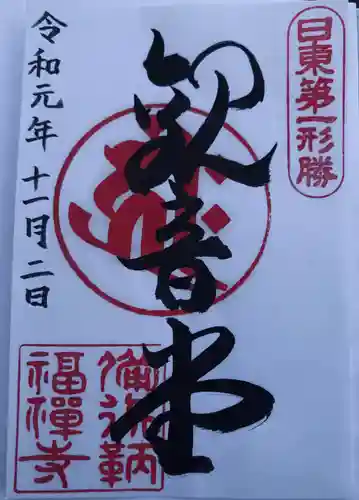 日東第一形勝
観音堂
令和元年十一月二日
備後鞆
福禅寺